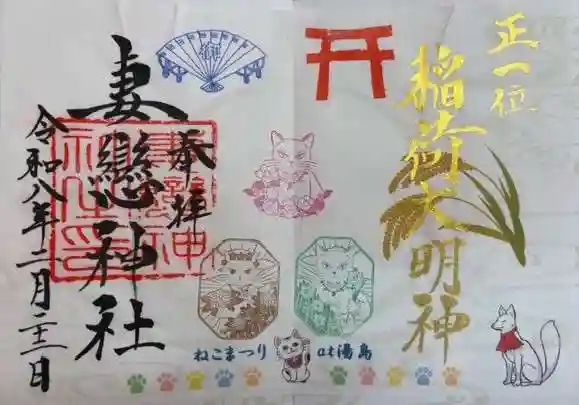 正一位
稲荷大明神
奉拝
妻戀神社
令和八年二月二十二日
ねこまつり at 湯島